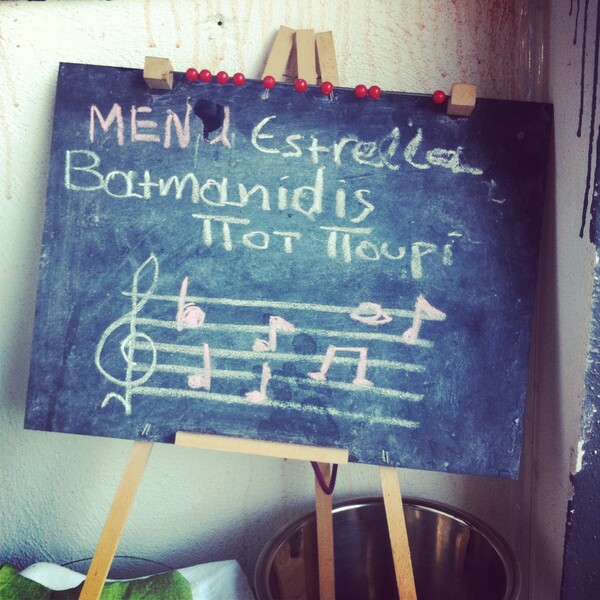 MENU Estrella
Batmanidis
Ποτ Πουρί